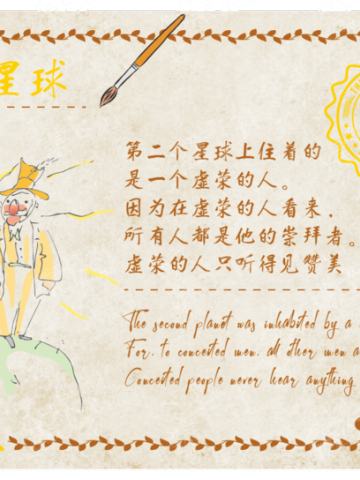 星球
第二个星球上住着的
是一个虚荣的人。
因为在虚荣的人看来,
所有人都是他的崇拜者。
虚荣的人只听得见赞美
The second planet was inhabited by a
For, to conceited men, all other men a
Conceited people never hear anything